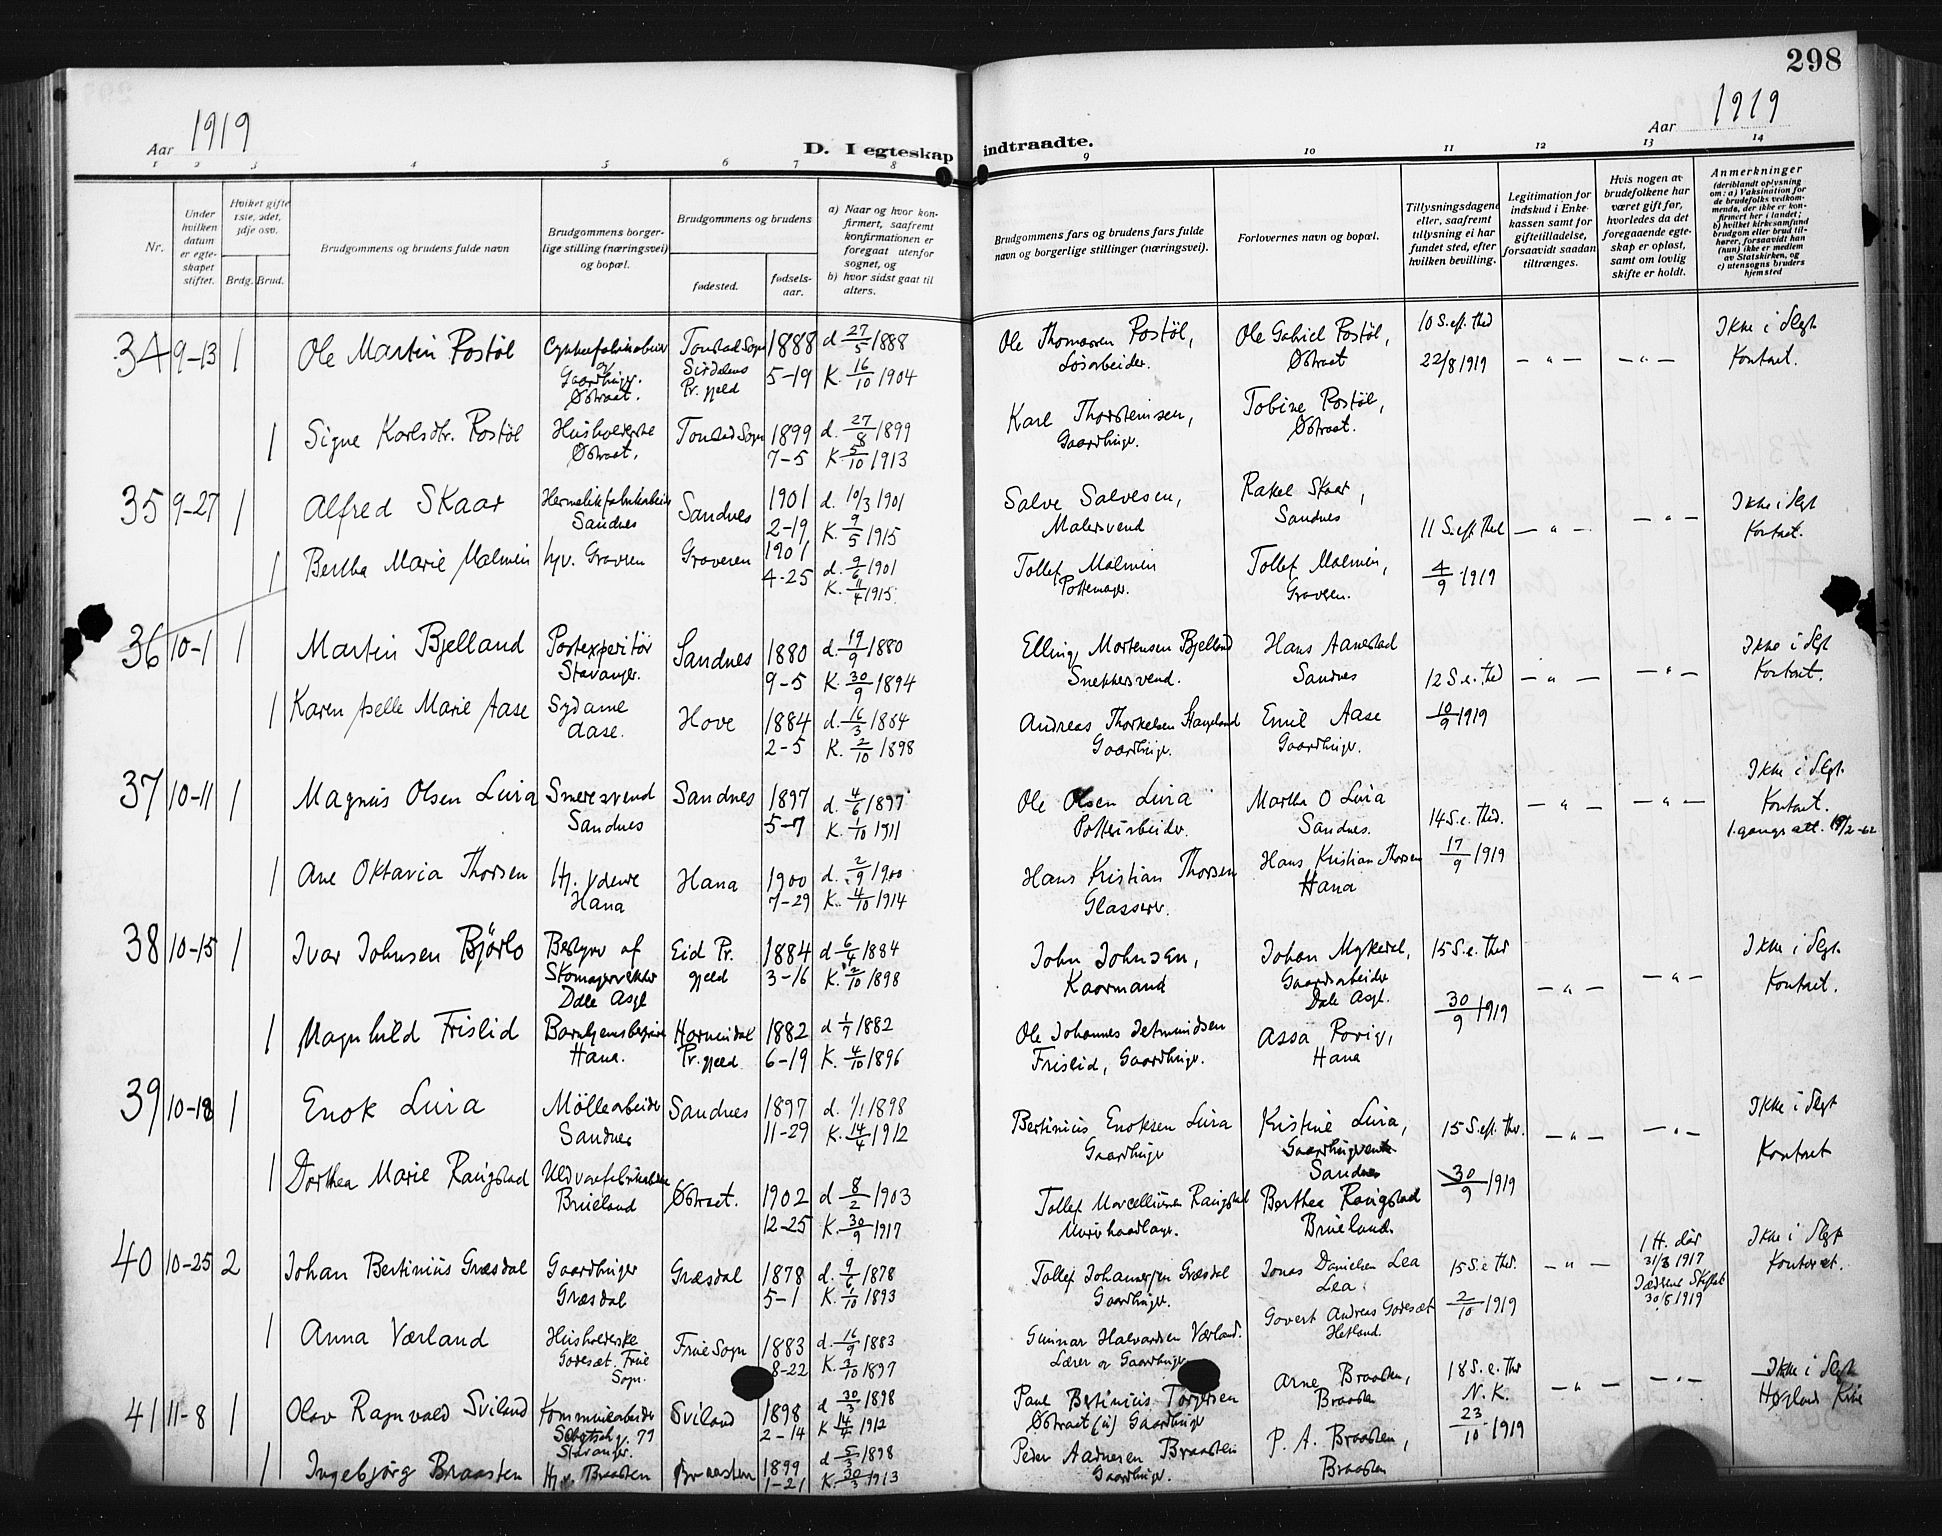 298
Aar 1919
Aar 1919
D. I egteskap indtraadte.
1 2 3 4 5 6 7 8 9 10 11 12 13 14
Nr.
Under hvilken datum er egteskapet stiftet.
Hvilket gifte 1ste, 2det, 3dje osv.
Brdg. Brud.
Brudgommens og brudens fulde navn
Brudgommens borgerlige stilling (næringsvei) og bopæl.
Brudgommens og brudens
fødested.
fødselsaar.
a) Naar og hvor konfirmert, saafremt konfirmationen er foregaat utenfor sognet, og
b) hvor sidst gaat til alters.
Brudgommens fars og brudens fars fulde navn og borgerlige stillinger (næringsvei).
Forlovernes navn og bopæl.
Tillysningsdagene eller, saafremt tillysning ei har fundet sted, efter hvilken bevilling.
Legitimation for indskud i Enkekassen samt for giftetilladelse, forsaavidt saadan tiltrænges.
Hvis nogen av brudefolkene har været gift før, hvorledes da det foregaaende egteskap er opløst, samt om lovlig skifte er holdt.
Anmerkninger
(deriblandt oplysning om: a) Vaksination for de brudefolks vedkommende, der ikke er konfirmert her i landet; b) hvilket kirkesamfund brudgom eller brud tilhører, forsaavidt han (hun) ikke er medlem av Statskirken, og c) utensogns bruders hjemsted
34 9-13 1 Ole Martin Rostøl Gaardbruger. Østraat. Tonstad Sogn Sirdalens Pr. gjeld 1888 5-19 d. 27/5 1888 K. 16/10 1904 Ole Thomassen Rostøl, Løsarbeider. Ole Gabriel Rostøl, Østraat 10 S. eft. Thed 22/8 1919 – " – – " – Ikke i Slegt Kontoret.
1 Signe Karlsdtr. Rostøl Husholderske Østraat. Tonstad Sogn 1899 7-5 d. 27/8 1899 K. 5/10 1913 Karl Thorsteinsen, Gaardbruger. Tobine Rostøl, Østraat.
35 9-27 1 Alfred Skaar Sandnes Sandnes 1901 2-19 d. 10/3 1901 K. 9/5 1915 Salve Salvesen, Malersvend Rakel Skaar, Sandnes 11 S. eft. Thed 4/9 1919 – " – – " – Ikke i Slegt Kontoret.
1 Bertha Marie Malmin hjv. Gravren Graveren 1901 4-25 d. 9/6 1901 K. 11/4 1915 Tollef Malmin Pottemager. Tollef Malmin, Graveren.
36 10-1 1 Martin Bjelland Postexpeditør Stavanger. Sandnes 1880 9-5 d. 19/9 1880 K. 30/9 1894 Elling Mortensen Bjelland Snekkersvend. Hans Aanestad Sandnes 12 S. e. Thed 10/9 1919 – " – – " – Ikke i Slegt Kontoret.
1 Karen Pelle Marie Aase Sydame Aase. Hove 1884 2-5 d. 16/3 1884 K. 2/10 1898 Andreas Thorkelsen Stangeland Gaardbruger. Emil Aase Gaardbruger.
37 10-11 1 Magnus Olsen Lura Smedesvend Sandnes Sandnes 1897 5-7 d. 4/6 1897 K. 1/10 1911 Ole Olsen Lura Potteriarbeider. Martha O Lura Sandnes. 14 S. e. Thed. 17/9 1919 – " – – " – Ikke i Slegt. Kontoret. 1. gangs att.
1 Ane Oktavia Thorsen Hj. ydende Hana Hana 1900 7-29 d. 2/9 1900 K. 4/10 1914 Hans Kristian Thorsen Glasserer. Hans Kristian Thorsen Hana
38 10-15 1 Ivar Johnsen Bjørlo Bestyrer af Dale Asyl Eid Pr. gjeld 1884 3-16 d. 6/4 1884 K. 2/10 1898 John Johnsen, Kaarmand Johan Myklevel, Gaardsarbeider Dale Asyl. 15 S. e. Thr 30/9 1919 – " – – " – Ikke i Slegt. Kontoret.
1 Magnhild Frislid Hana. Hornindal Pr. gjeld 1882 6-19 d. 1/7 1882 K. 4/10 1896 Ole Johannes Jetmundsen Frislid, Gaardbruger. Assa Rovig, Hana
39 10-18 1 Enok Lura Møllearbeider Sandnes Sandnes 1897 11-29 d. 1/1 1898 K. 14/4 1912 Bertinius Enoksen Lura Gaardbruger Kristine Lura, Sandnes 15 S. eft. Thr. 30/9 1919 – " – – " – Ikke i Slegt Kontoret
1 Dorthea Marie Ravigstad Brueland Østraat. 1902 12-25 d. 8/2 1903 K. 30/9 1917 Tollef Marcellius Ravigstad Berthea Ravigstad Brueland.
40 10-25 2 Johan Bertinius Græsdal Gaardbruger Græsdal Græsdal 1878 5-1 d. 9/6 1878 K. 1/10 1893 Tollef Johannesen Græsdal Gaardbruger. Jonas Danielsen Lea Lea. 15 S. e. Thr. 2/10 1919 – " – 1 H. død 31/8 1917 30/5 1919 Ikke i Slegt Kontoret.
1 Anna Værland Husholderske Godeset. Frue Sogn. Frue Sogn 1883 8-22 d. 16/9 1883 K. 3/10 1897 Gunnar Halvardsen Værland. Lærer og Gaardbruger Govert Andreas Godeset Hetland.
41 11-8 1 Olav Ragnvald Sviland Kommunearbeider Stavanger. Sviland 1898 2-14 d. 30/3 1898 K. 14/4 1912 Paul Bertinius Torgersen Østraat (u) Gaardbruger Arne Braasten, Braasten 18 S. e. Thr N. K. 23/10 1919 – " – – " – Ikke i Slegt Høyland Kirke
1 Ingebjørg Braasten Hj. v. Braasten Braasten 1899 1-21 d. 5/3 1898 K. 30/3 1913 Peder Aadnesen Braasten Gaardbruger. P. A. Braasten, Braasten